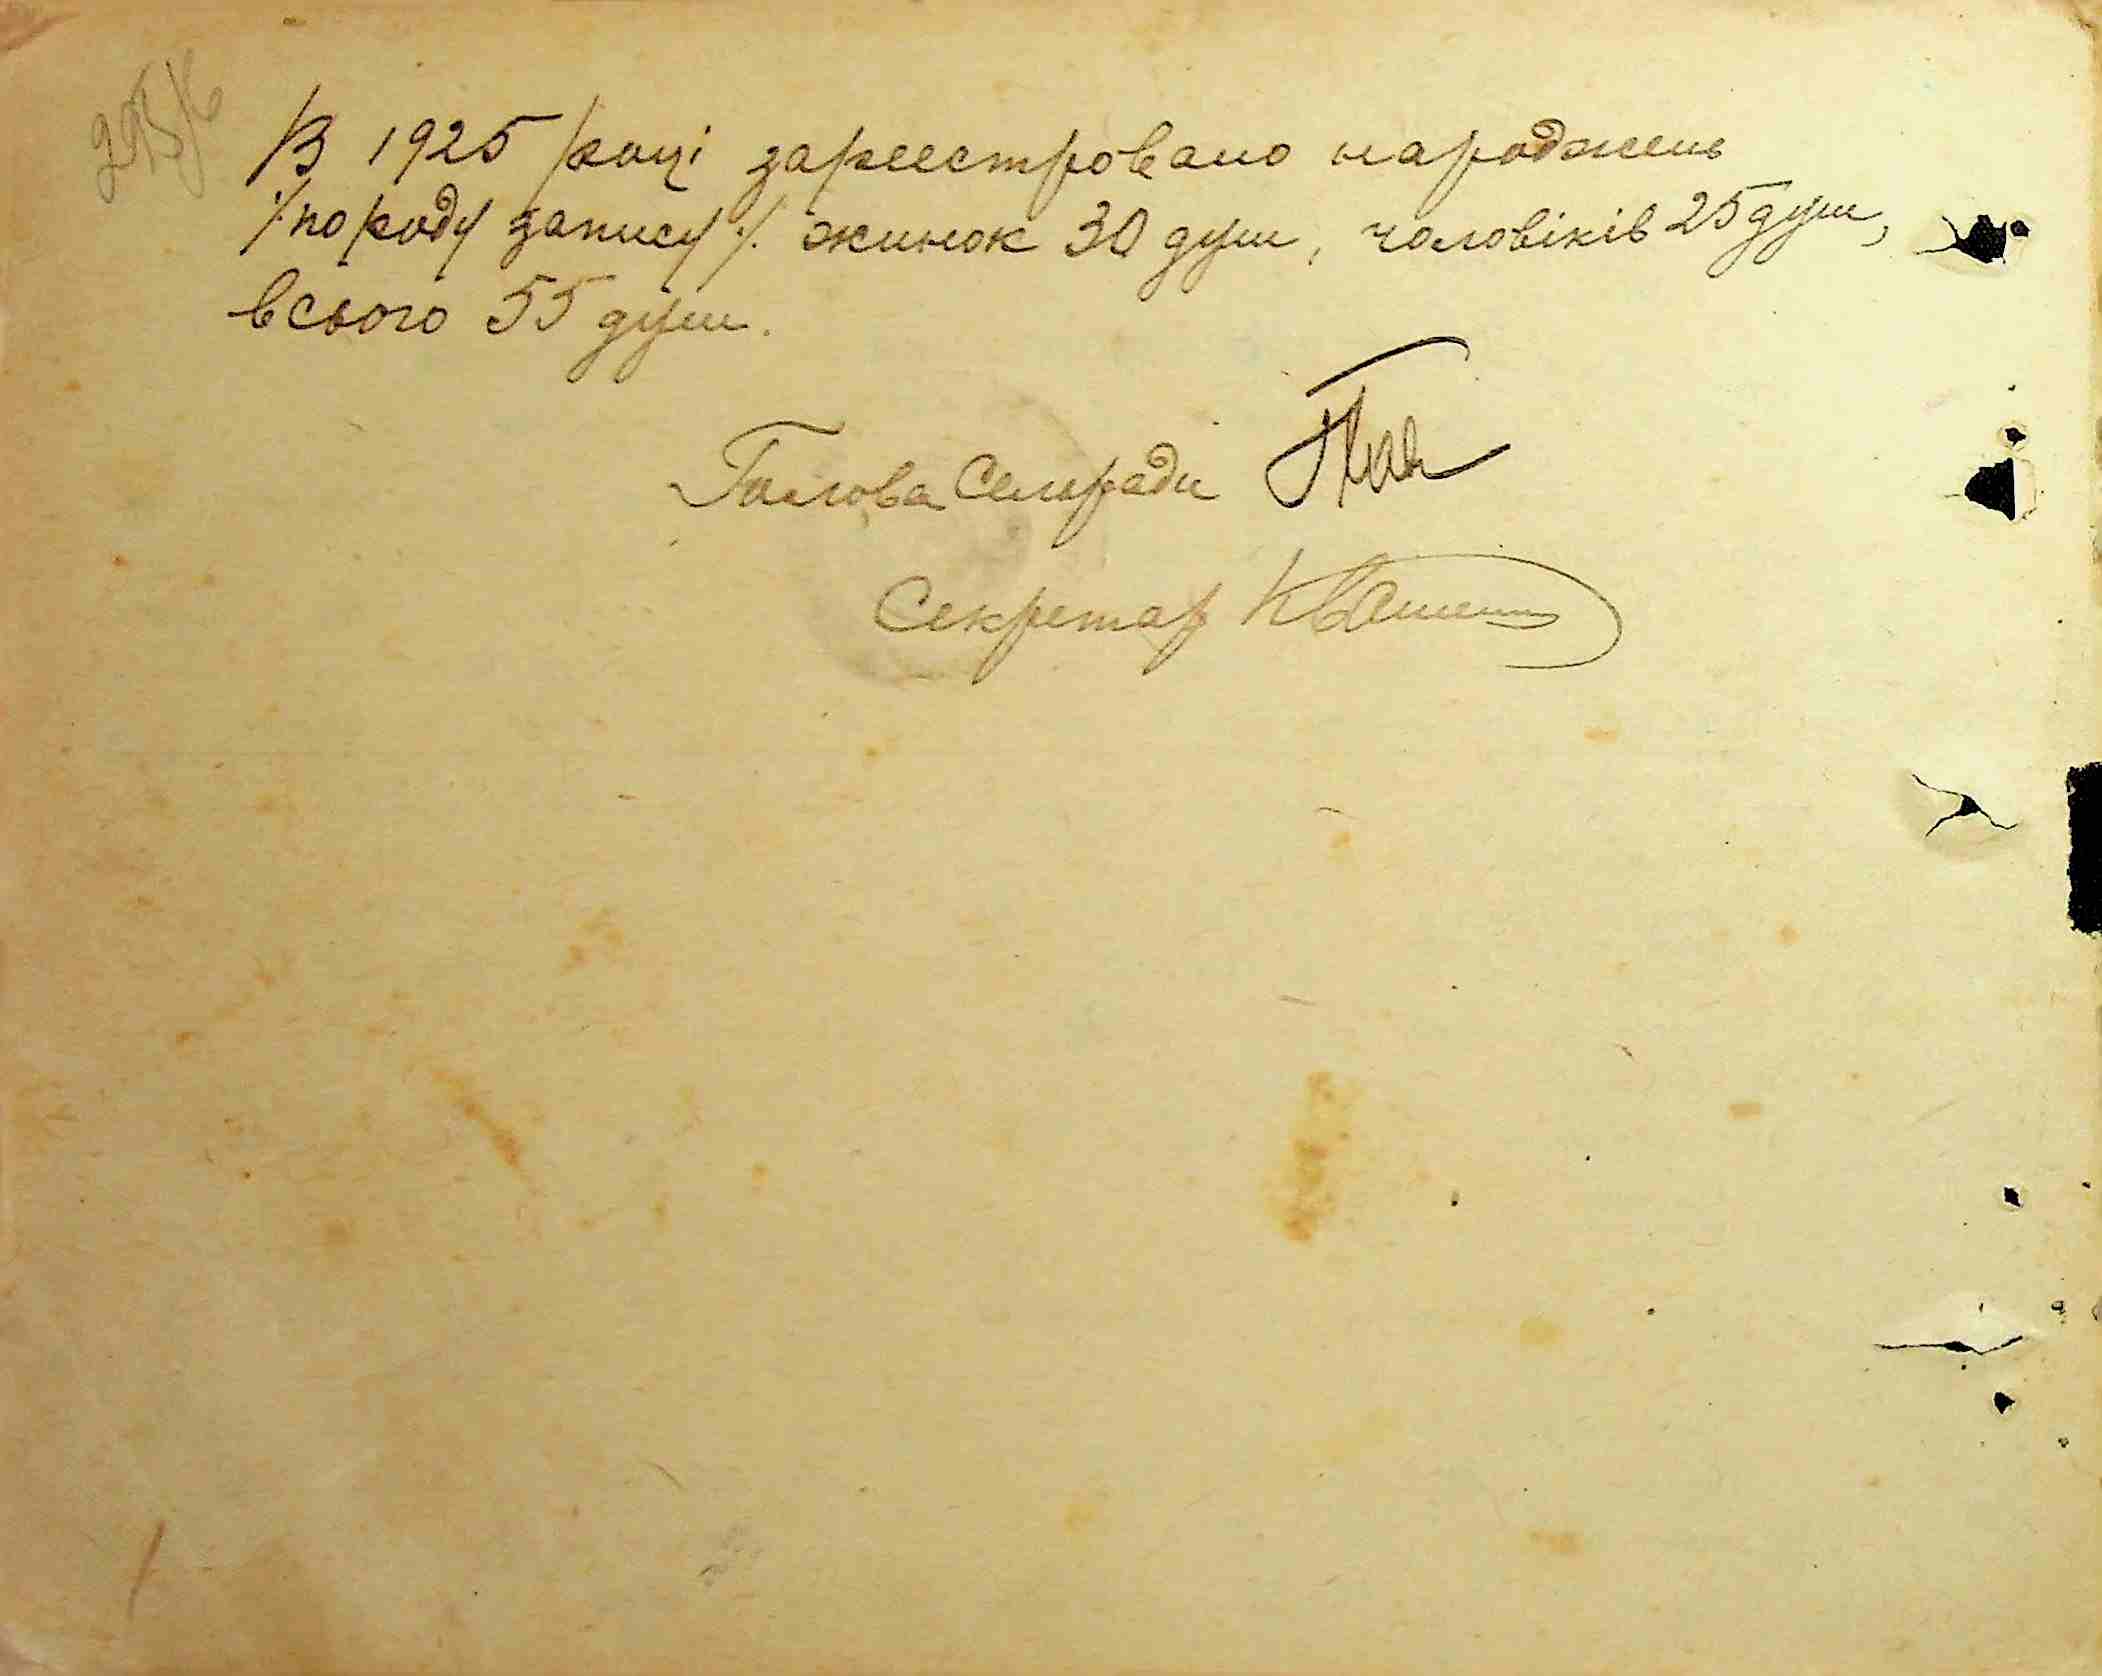 В 1925 році зареестровано народжень
/по роду запису/. жинок 30 душ, чоловіків 25 душ,
всього 55 душ.
Голова Сельради
Секретар